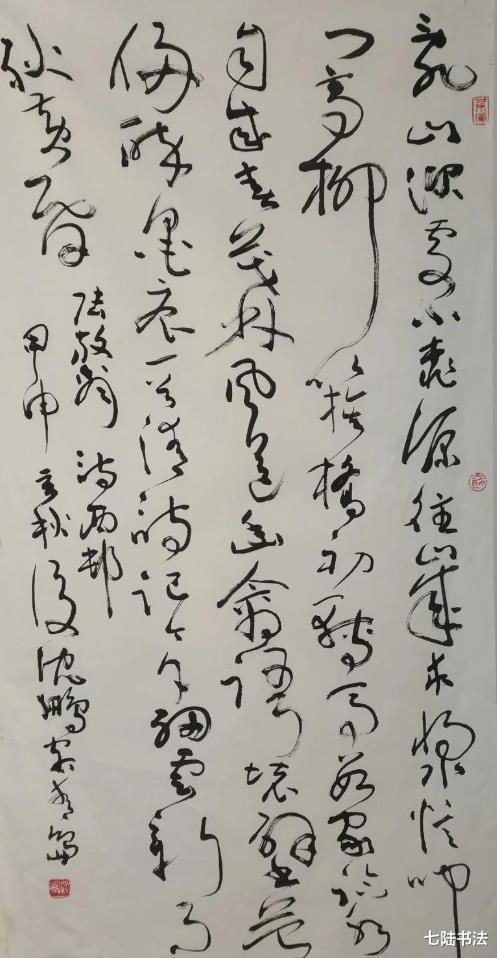 亂山深處小桃源往歲求漿憶叩
門高柳簇橋初轉馬數家臨水
自成茂林風送幽禽語壞壁苔
侵醉墨痕一首清詩記今細雲新月
耿黃昏
陸放翁詩西邨
甲申秋後沈鵬
七陆书法